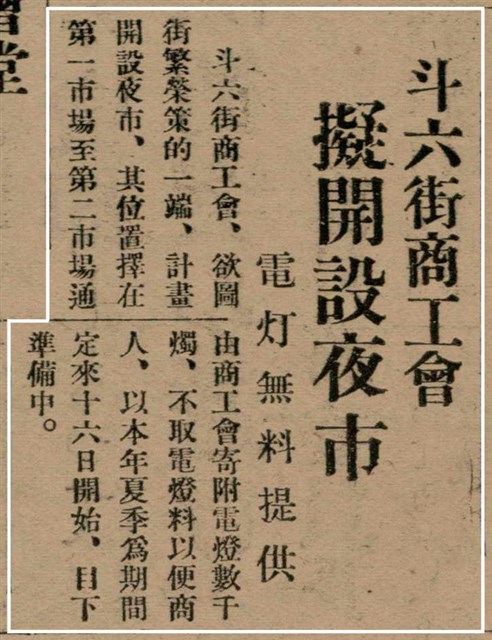 斗六街商工會
擬開設夜市
電灯無料提供
斗六街商工會、欲圖
街繁榮策的一端、計畫
開設夜市、其位置擇在
第一市場至第二市場通
由商工會寄附電燈數千
燭、不取電燈料以便商
人、以本年夏季爲期間
定來十六日開始、目下
準備中。
堂